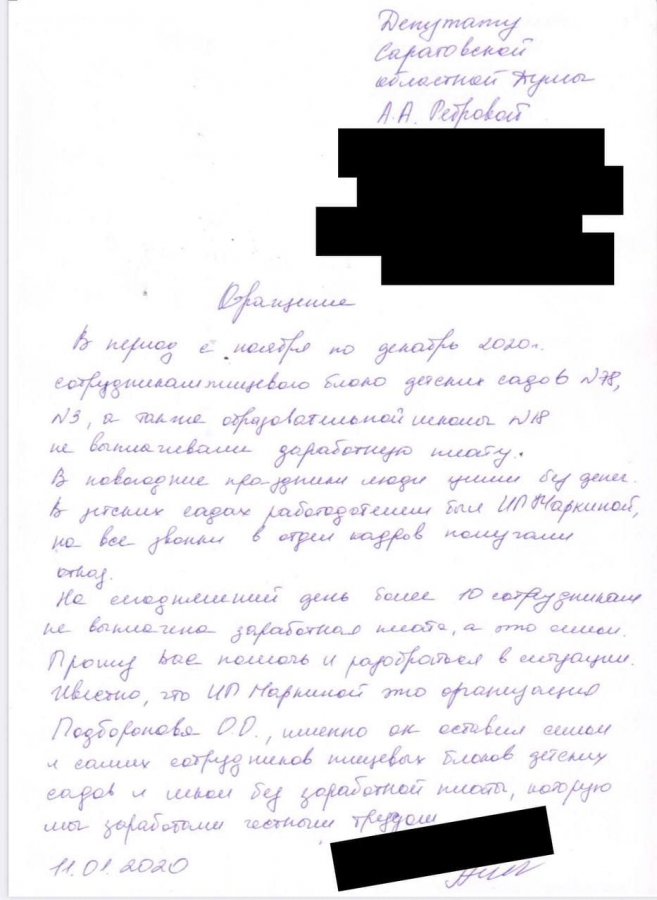 Депутату
Саратовской
областной Думы
А.А. Петровой
Обращение
В период с ноября по декабрь 2020г.
сотрудникам пищевого блока детских садов №78,
№3, а также образовательной школы №18
не выплачивали заработную плату.
В новогодние праздники люди ушли без денег.
В детских садах работодателем был ИП Маркиной,
на все звонки в отдел кадров получали
отказ.
На сегодняшний день более 10 сотрудникам
не выплачена заработная плата, а это семьи.
Прошу Вас помочь и разобраться в ситуации.
Известно, что ИП Маркиной это организация
Подборонова О.О., именно он оставил семьи
и самих сотрудников пищевых блоков детских
садов и школ без заработной платы, которую
мы заработали честным трудом
11.01.2020